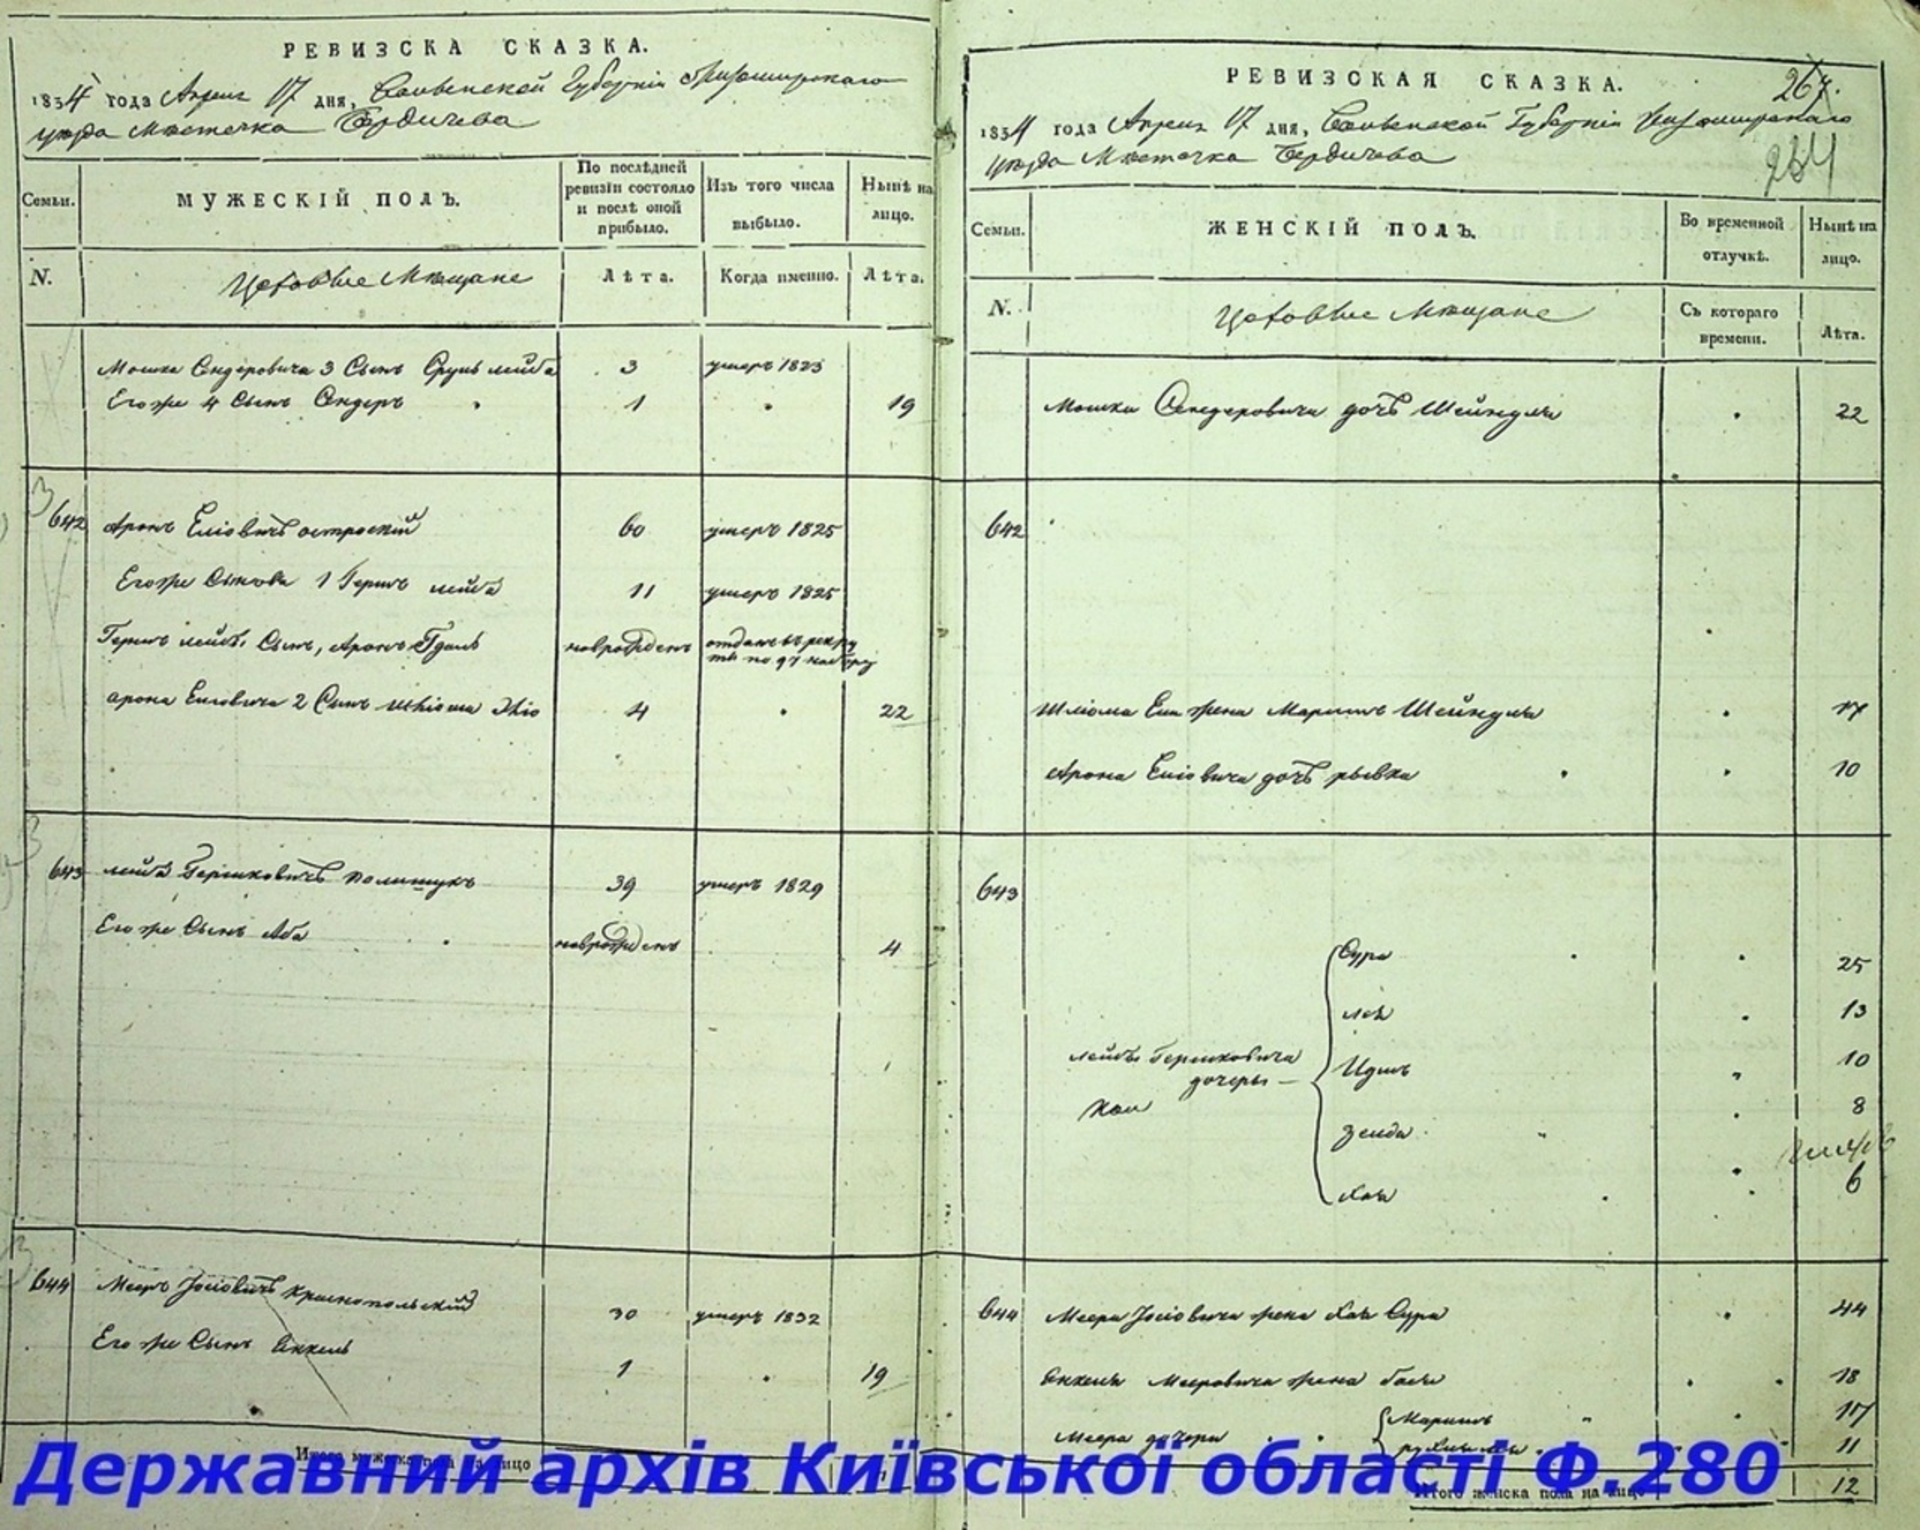 РЕВИЗСКА СКАЗКА.
1834 года Апреля 17 дня, Волынской Губерніи Житомирскаго
уезда Местечка Бердичева
Семьи.
МУЖЕСКІЙ ПОЛЪ.
По послѣдней ревизіи состояло и послѣ оной прибыло.
Изъ того числа выбыло.
Нынѣ на лицо.
N.
Цеховые Мещане
Лѣта.
Когда именно.
Лѣта.
Мошка Сендеровича 3 Сынъ Сруль лейба 3 умеръ 1823
Его же 4 Сынъ Сендеръ 1 19
642 Аронъ Еліовичъ острскій 60 умеръ 1825
Его же Сынова 1 Гершъ лейба 11 умеръ 1825
Гершъ лейб. Сынъ, Аронъ новрожденъ отданъ въ рекру
ты по 97 набору
арона Еліовича 2 Сынъ Шліома Эліо 4 22
643 лейба Гершковичъ полищукъ 39 умеръ 1829
Его же Сынъ Аба новрожденъ 4
644 Мееръ Іосіовичъ краснопольскій 30 умеръ 1832
Его же Сынъ Янкель 1 19
Итого мужеска пола на лицо
РЕВИЗСКАЯ СКАЗКА.
267.
254
1834 года Апреля 17 дня, Волынской Губерніи Житомирскаго
уезда Местечка Бердичева
Семьи.
ЖЕНСКІЙ ПОЛЪ.
Во временной отлучкѣ.
Нынѣ на лицо.
N.
Цеховые Мещане
Съ котораго времени.
Лѣта.
Мошки Сендеровича дочь Шейндля 22
642
Шліома Еліи жена Маріимъ Шейндля 17
Арона Еліовича дочь рывка 10
643
Сура 25
лея 13
лейбы Гершковича
дочеры —
Идись 10
Зелда 8
Хая 6
644 Меера Іосіовича жена Хая Сура 44
Янкеля Мееровича жена бася 18
Меера дочери
Маріимъ 17
рухля 11
Итого женска пола на лицо 12
Державний архів Київської області Ф.280